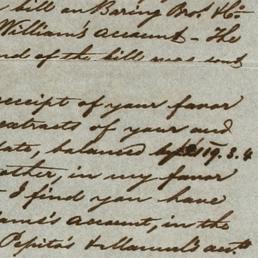 bill on Baring Bros. & Co.
William's account - The
nd of the bill was sent
receipt of your favor
extracts of your and
late, balanced 19.3.4
other, in my favor
I find you have
iams's account, in the
Pepita's & Manuel's acct.